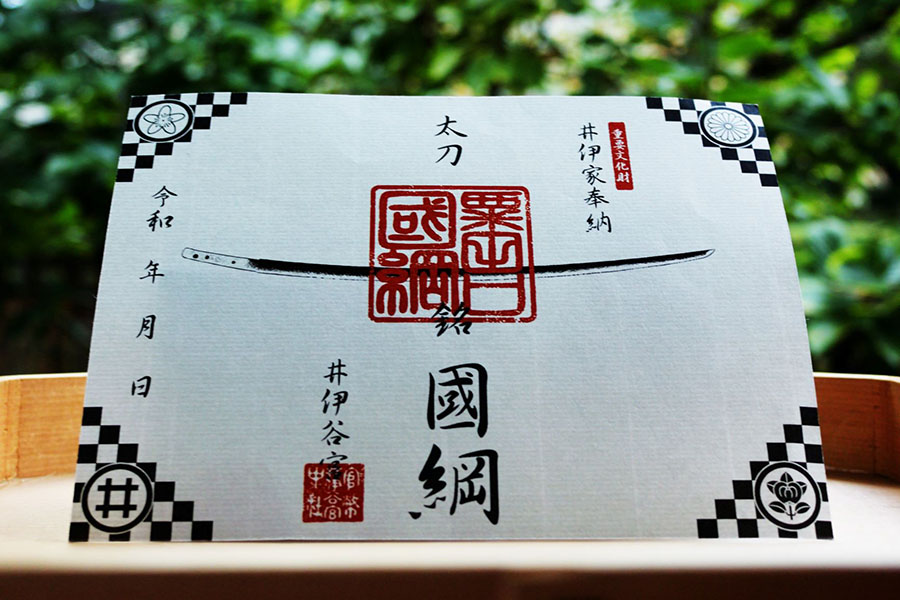 重要文化財
井伊家奉納
太刀
粟田口
國綱
銘
國綱
井伊谷宮
官幣
井伊谷宮
中社
令和 年 月 日
井